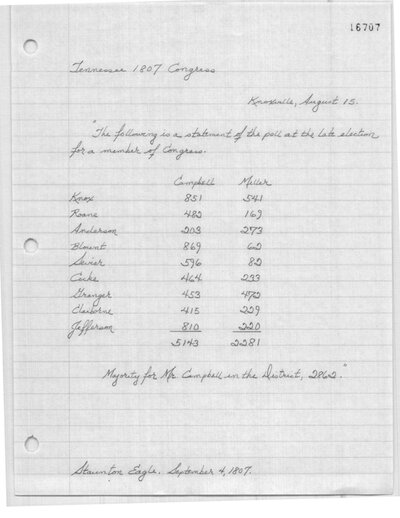 16707
Tennessee 1807 Congress
Knoxville, August 15.
"The following is a statement of the poll at the late election
for a member of Congress.
Campbell Miller
Knox 851 541
Roane 482 169
Anderson 203 273
Blount 869 62
Sevier 596 82
Cocke 464 233
Granger 453 472
Claiborne 415 229
Jefferson 810 220
5143 2281
Majority for Mr. Campbell in the District, 2862."
Staunton Eagle. September 4, 1807.